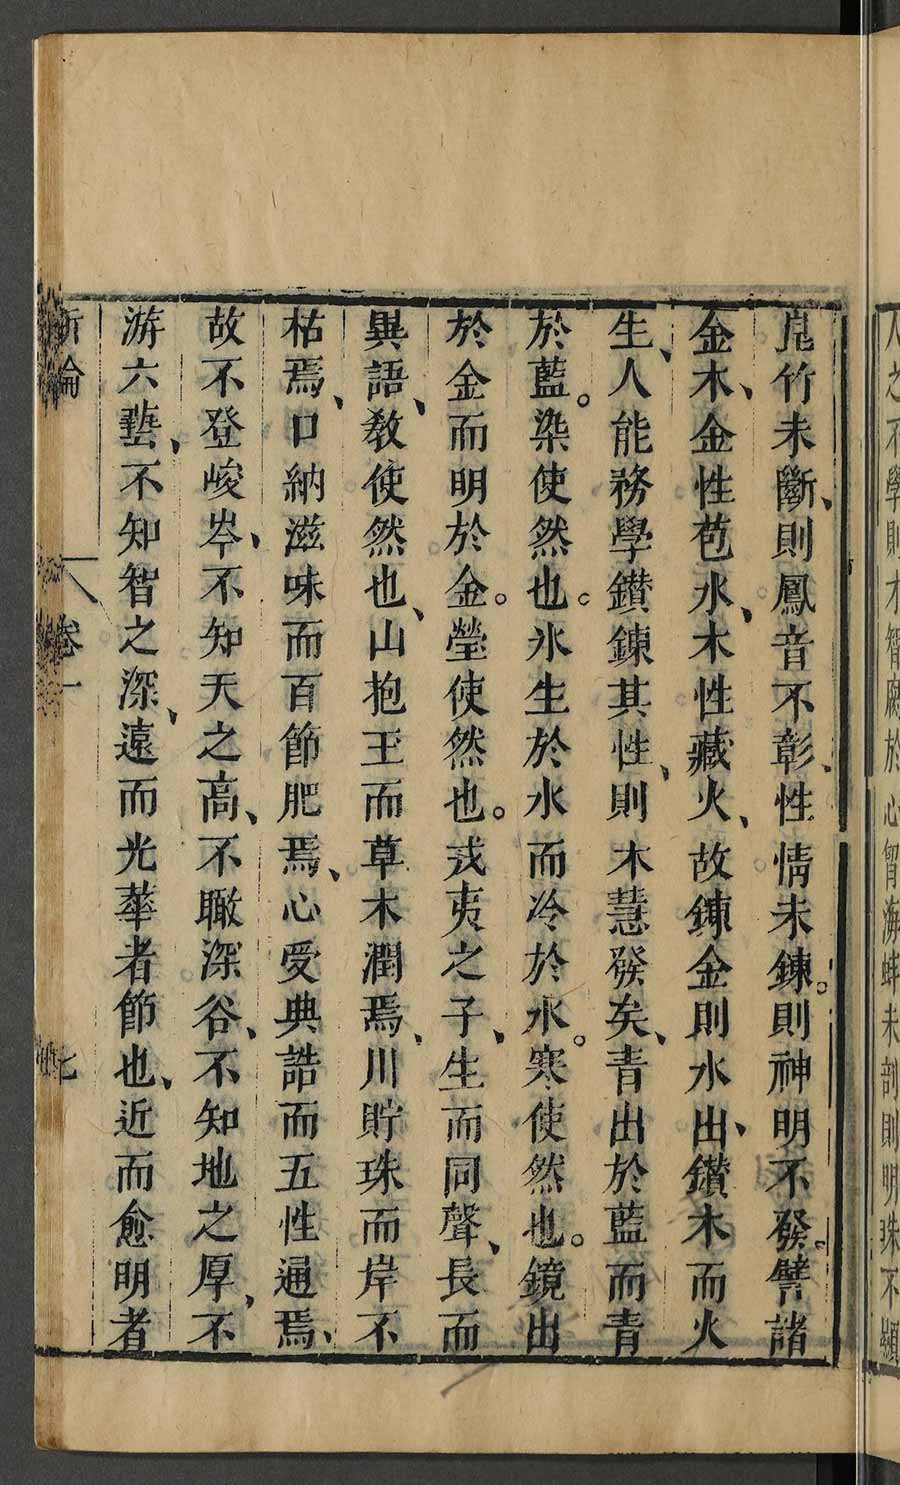 人之不學則才智腐於心胷海蚌未剖則明珠不顯
昆竹未斷、則鳳音不彰、性情未鍊。則神明不發。譬諸
金木、金性苞水、木性藏火、故鍊金則水出、鑽木而火
生、人能務學鑽鍊其性、則木慧發矣、青出於藍而青
於藍。染使然也。氷生於水而冷於水。寒使然也。鏡出
於金而明於金。瑩使然也。戎夷之子、生而同聲、長而
異語、教使然也、山抱玉而草木潤焉、川貯珠而岸不
枯焉、口納滋味而百節肥焉、心受典誥而五性通焉、
故不登峻岑、不知天之高、不瞰深谷、不知地之厚、不
游六藝、不知智之深、遠而光華者節也、近而愈明者
新論 卷一 七